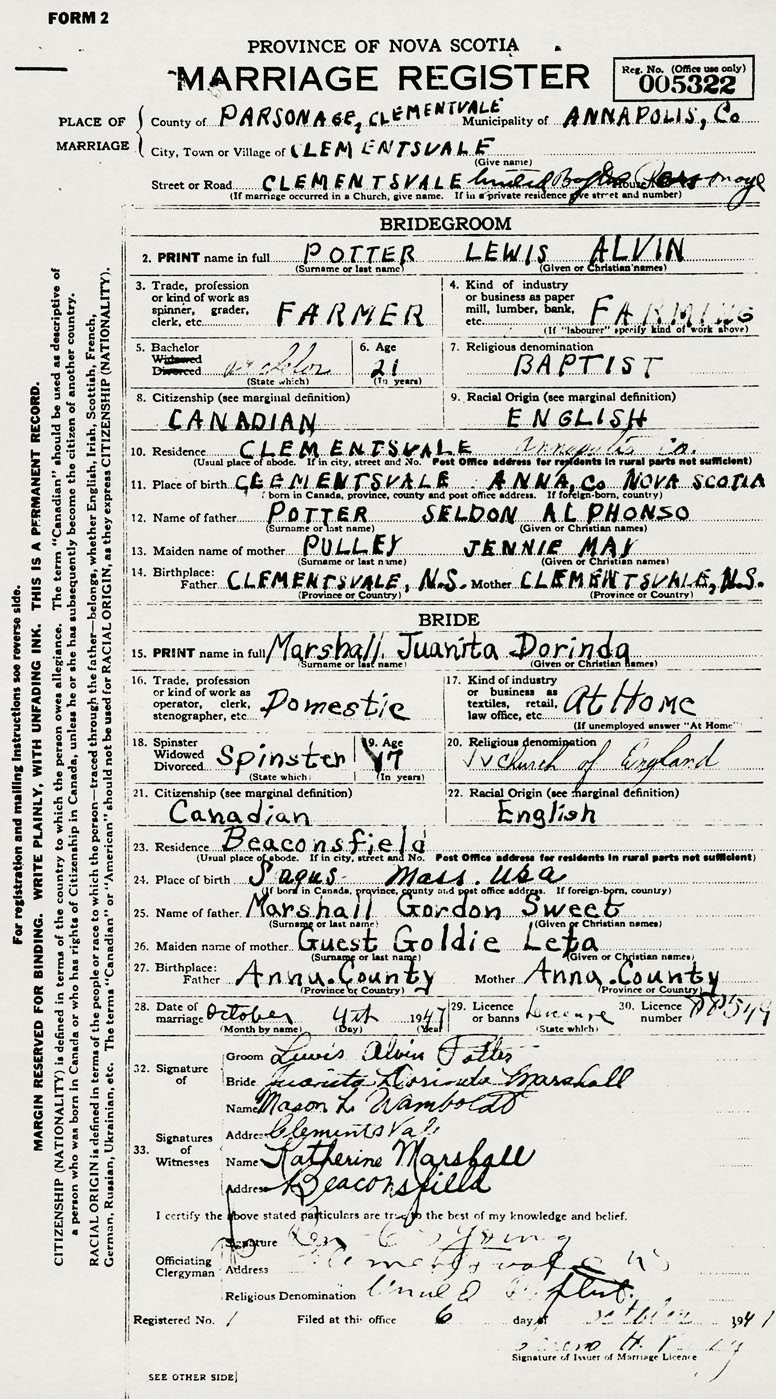 FORM 2
PROVINCE OF NOVA SCOTIA
MARRIAGE REGISTER
Reg. No. (Office use only)
005322
PLACE OF MARRIAGE
County of PARSONAGE, CLEMENTVALE Municipality of ANNAPOLIS, Co
City, Town or Village of CLEMENTSVALE
(Give name)
Street or Road CLEMENTSVALE United Baptist House Parsonage
(If marriage occurred in a Church, give name. If in a private residence give street and number)
BRIDEGROOM
2. PRINT name in full POTTER LEWIS ALVIN
(Surname or last name) (Given or Christian names)
3. Trade, profession or kind of work as spinner, grader, clerk, etc. FARMER
4. Kind of industry or business as paper mill, lumber, bank, etc. FARMING
(If "labourer" specify kind of work above)
5. Bachelor Widowed Divorced Bachelor
(State which)
6. Age 21
(In years)
7. Religious denomination
BAPTIST
8. Citizenship (see marginal definition)
CANADIAN
9. Racial Origin (see marginal definition)
ENGLISH
10. Residence CLEMENTSVALE Annapolis Co.
(Usual place of abode. If in city, street and No. Post Office address for residents in rural parts not sufficient)
11. Place of birth CLEMENTSVALE ANNA, Co NOVA SCOTIA
(If born in Canada, province, county and post office address. If foreign-born, country)
12. Name of father POTTER SELDON ALPHONSO
(Surname or last name) (Given or Christian names)
13. Maiden name of mother PULLEY JENNIE MAY
(Surname or last name) (Given or Christian names)
14. Birthplace: Father CLEMENTSVALE, N.S. Mother CLEMENTSVALE, N.S.
(Province or Country) (Province or Country)
BRIDE
15. PRINT name in full Marshall Juanita Dorinda
(Surname or last name) (Given or Christian names)
16. Trade, profession or kind of work as operator, clerk, stenographer, etc. Domestic
17. Kind of industry or business as textiles, retail, law office, etc. At Home
(If unemployed answer "At Home"
18. Spinster Widowed Divorced. Spinster
(State which)
19. Age 17
(In years)
20. Religious denomination
church of England
21. Citizenship (see marginal definition)
Canadian
22. Racial Origin (see marginal definition)
English
23. Residence Beaconsfield
(Usual place of abode. If in city, street and No. Post Office address for residents in rural parts not sufficient)
24. Place of birth Sagus Mass. Usa
(If born in Canada, province, county and post office address. If foreign-born, country)
25. Name of father Marshall Gordon Sweet
(Surname or last name) (Given or Christian names)
26. Maiden name of mother Guest Goldie Leta
(Surname or last name) (Given or Christian names)
27. Birthplace: Father Anna. County Mother Anna. County
(Province or Country) (Province or Country)
28. Date of marriage October 4th 1947
(Month by name) (Day) (Year)
29. Licence or banns Licence
(State which)
30. Licence number
32. Signature of
Groom Lewis Alvin Potter
Bride Juanita Dorinda Marshall
33. Signatures of Witnesses
Name Mason L. Wamboldt
Address Clementsvale
Name Katherine Marshall
Address Beaconsfield
I certify the above stated particulars are true to the best of my knowledge and belief.
Officiating Clergyman
Signature Young
Address Clementsvale NS
Religious Denomination United Baptist.
Registered No. 1 Filed at this office 6 day of October 194
Signature of Issuer of Marriage Licence
SEE OTHER SIDE
For registration and mailing instructions see reverse side.
MARGIN RESERVED FOR BINDING. WRITE PLAINLY, WITH UNFADING INK. THIS IS A PERMANENT RECORD.
CITIZENSHIP (NATIONALITY) is defined in terms of the country to which the person owes allegiance. The term "Canadian" should be used as descriptive of
a person who was born in Canada or who has rights of Citizenship in Canada, unless he or she has subsequently become the citizen of another country.
RACIAL ORIGIN is defined in terms of the people or race to which the person—traced through the father—belongs, whether English, Irish, Scottish, French,
German, Russian, Ukrainian, etc. The terms "Canadian" or "American" should not be used for RACIAL ORIGIN, as they express CITIZENSHIP (NATIONALITY).